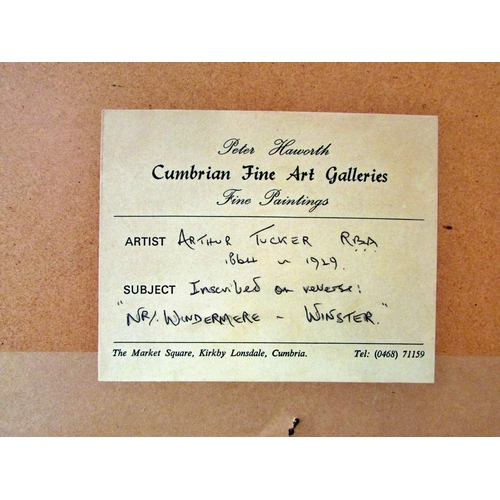 Peter Haworth
Cumbrian Fine Art Galleries
Fine Paintings
ARTIST ARTHUR TUCKER RBA
1864 - 1929.
SUBJECT Inscribed on reverse:
"NR/. WINDERMERE - WINSTER."
The Market Square, Kirkby Lonsdale, Cumbria. Tel: (0468) 71159